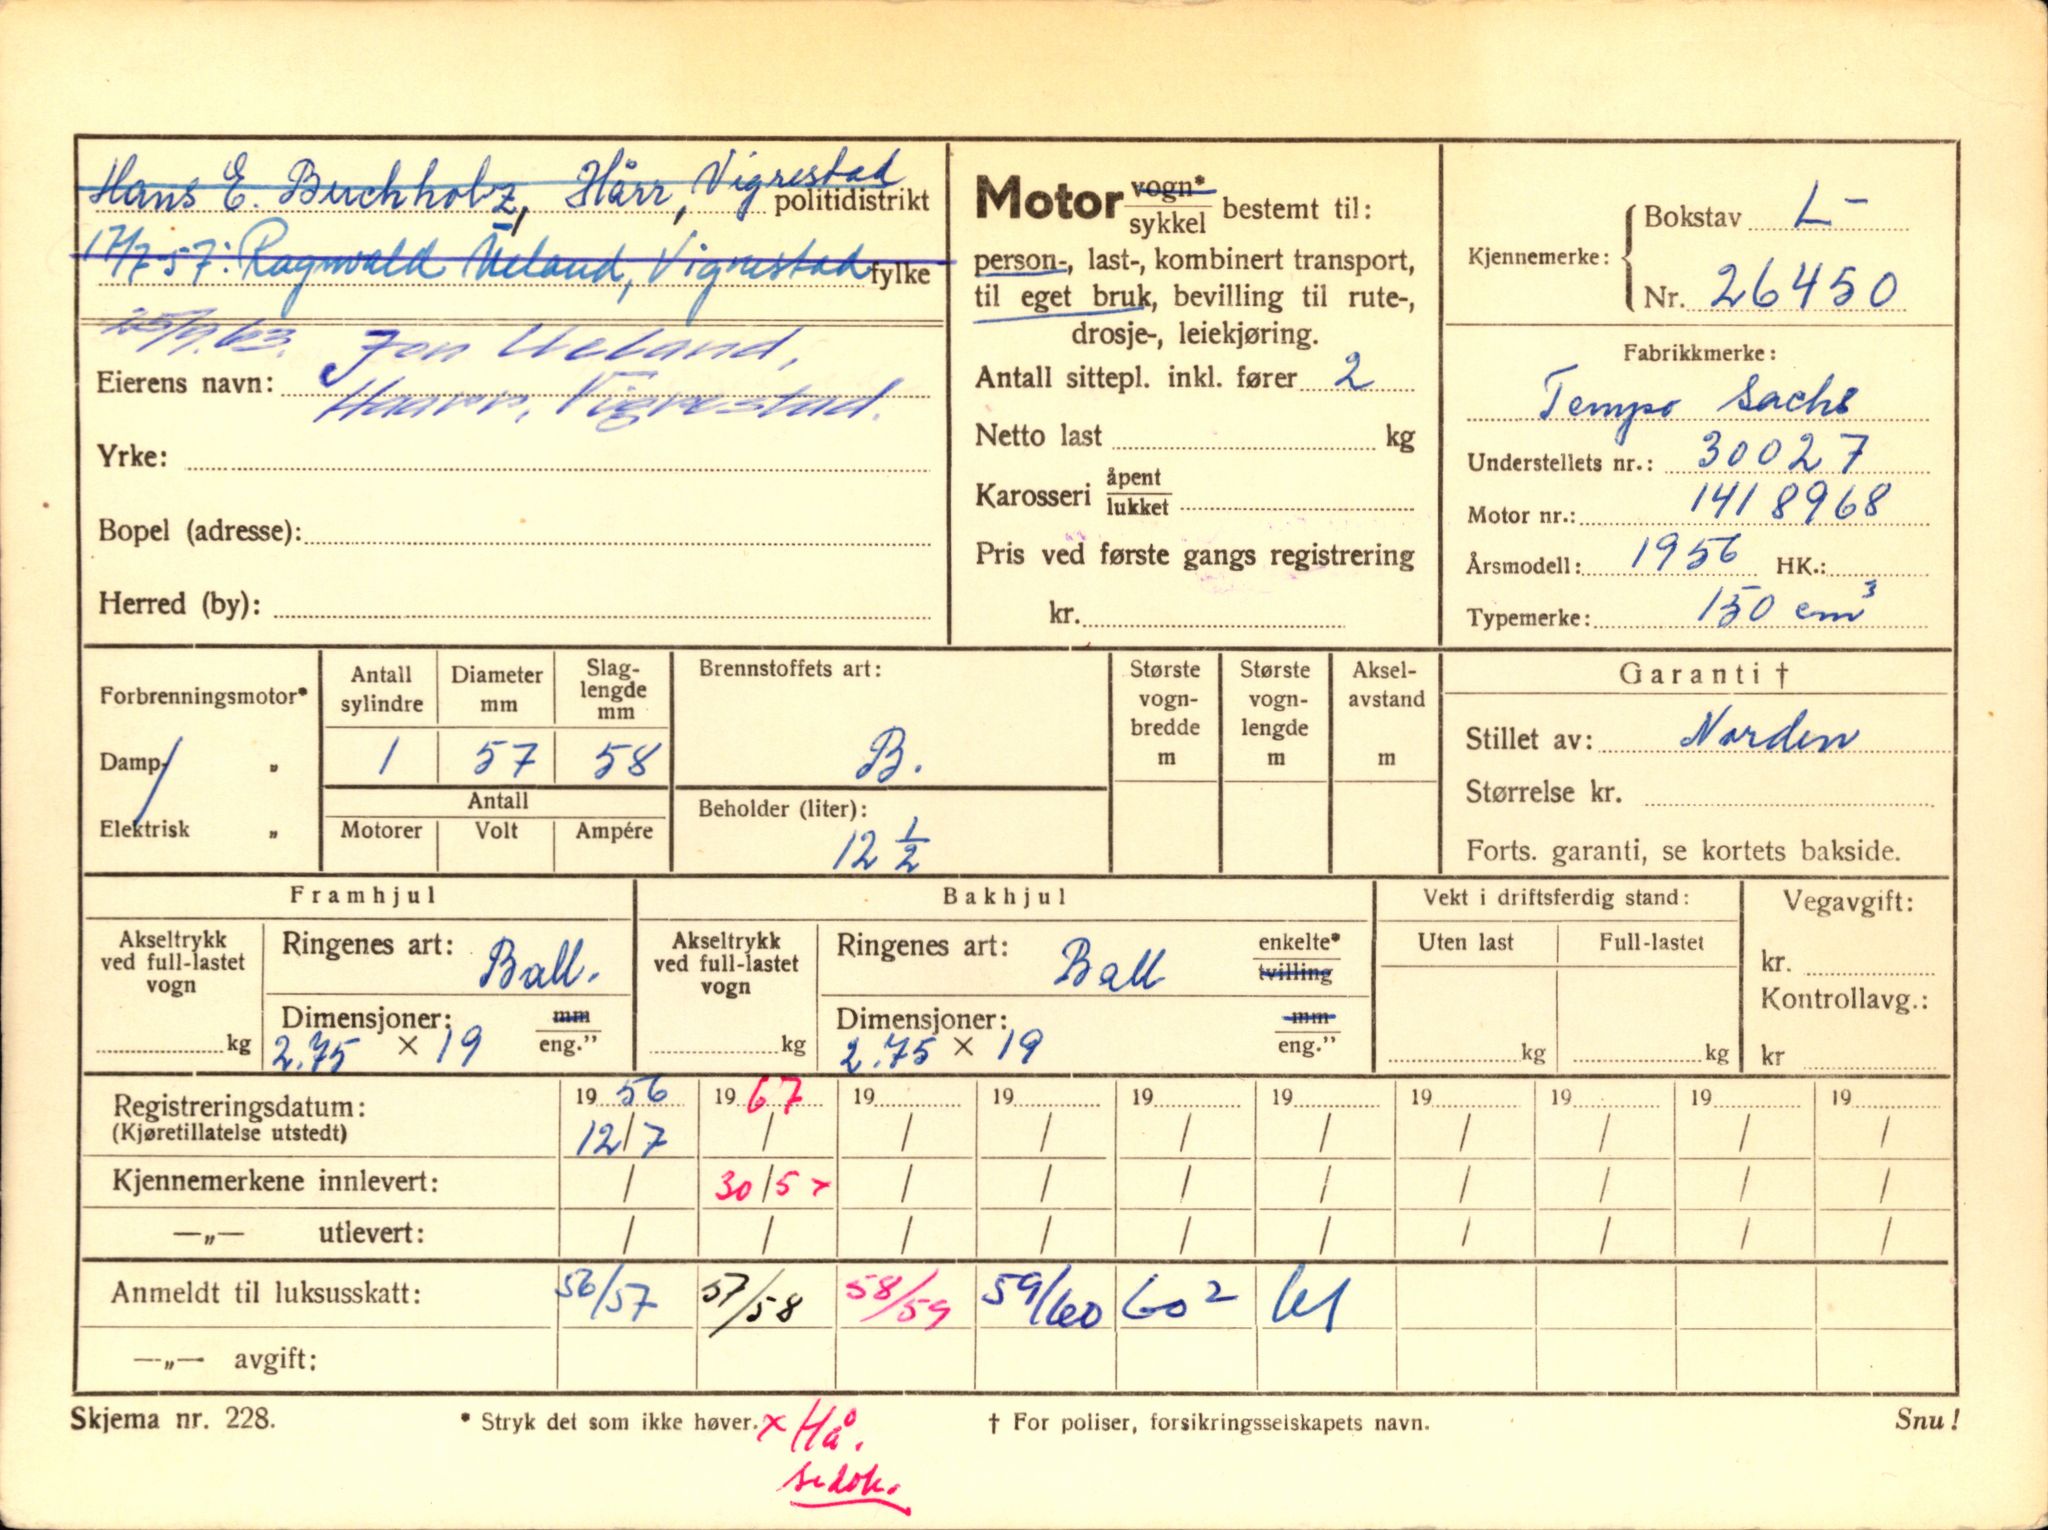 Hans E. Buchholz, Hårr, Vigrestad
politidistrikt
17/7-57: Ragnvald Ueland, Vigrestad
fylke
25/9.63. Jon Ueland,
Eierens navn:
Haarr, Vigrestad.
Yrke:
Bopel (adresse):
Herred (by):
Motor vogn*
sykkel bestemt til:
person-, last-, kombinert transport,
til eget bruk, bevilling til rute-,
drosje-, leiekjøring.
Antall sittepl. inkl. fører 2
Netto last kg
Karosseri åpent
lukket
Pris ved første gangs registrering
kr.
Kjennemerke: Bokstav L-
Nr. 26450
Fabrikkmerke:
Tempo Sachs
Understellets nr.: 30027
Motor nr.: 1418968
Årsmodell: 1956 HK.:
Typemerke: 150 cm³
Forbrenningsmotor*
Damp- „
Elektrisk „
Antall sylindre
Diameter mm
Slag-
lengde
mm
1 57 58
Antall
Motorer Volt Ampére
Brennstoffets art:
B.
Beholder (liter):
12 1/2
Største
vogn-
bredde
m
Største
vogn-
lengde
m
Aksel-
avstand
m
Garanti †
Stillet av: Norden
Størrelse kr.
Forts. garanti, se kortets bakside.
Framhjul
Akseltrykk
ved full-lastet
vogn
kg
Ringenes art: Ball.
Dimensjoner: mm
2.75 × 19 eng.”
Bakhjul
Akseltrykk
ved full-lastet
vogn
kg
Ringenes art: Ball enkelte*
tvilling
Dimensjoner: mm
2.75 × 19 eng.”
Vekt i driftsferdig stand:
Uten last Full-lastet
kg kg
Vegavgift:
kr.
Kontrollavg.:
kr
Registreringsdatum: 19 56 19 67 19 19 19 19 19 19 19 19
(Kjøretillatelse utstedt) 12/7 / / / / / / / / /
Kjennemerkene innlevert: / 30/5 × / / / / / / / /
—„— utlevert: / / / / / / / / / /
Anmeldt til luksusskatt: 56/57 57/58 58/59 59/60 60² 61
—„— avgift:
Skjema nr. 228. * Stryk det som ikke høver. × Hå. † For poliser, forsikringsselskapets navn. Snu!